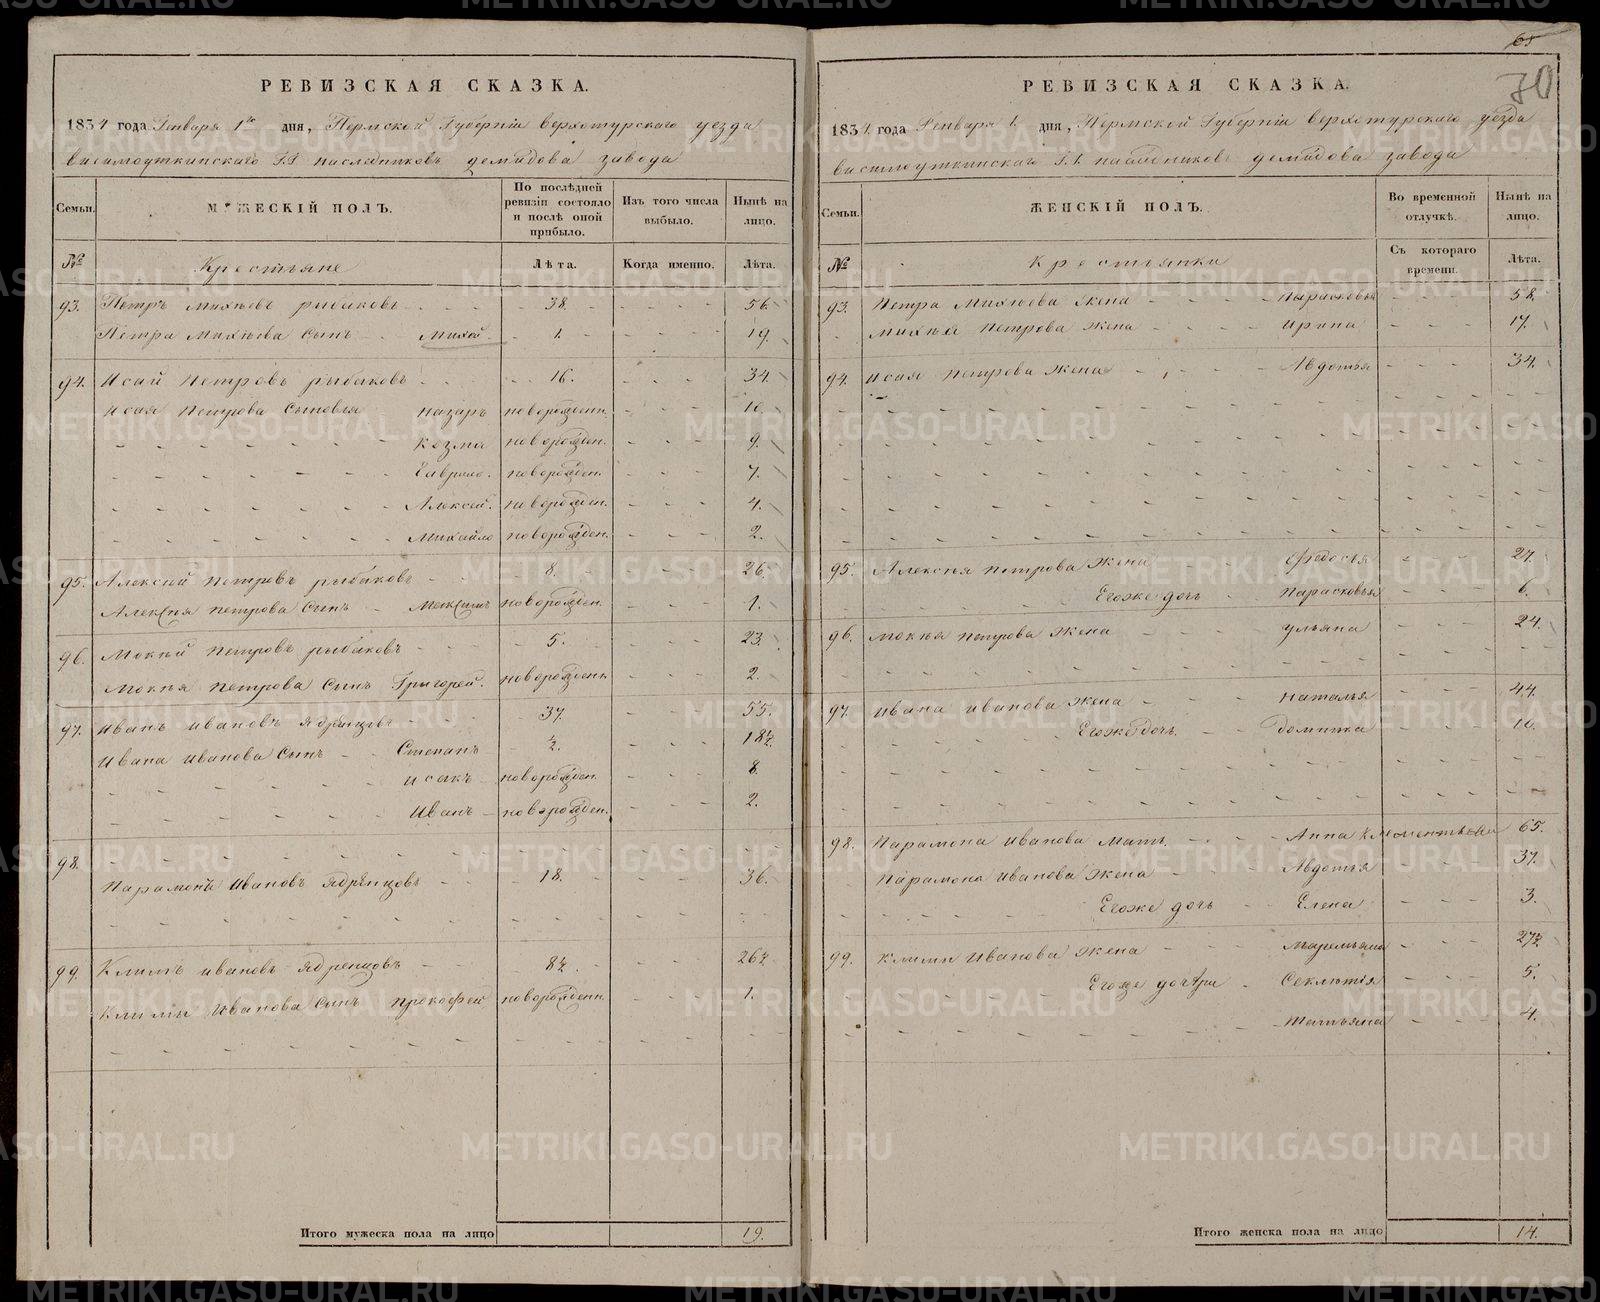 65
70
РЕВИЗСКАЯ СКАЗКА.
1834 года Генваря 1го дня, Пермской Губернiи верхотурскаго уезда
висимоуткинскаго Г.Г. наследниковъ демидова завода
Семьи. МУЖЕСКIЙ ПОЛЪ. По послѣдней ревизiи состояло и послѣ оной прибыло. Изъ того числа выбыло. Нынѣ на лицо.
№ Крестьяне Лѣта. Когда именно. Лѣта.
93. Петръ михѣевъ рыбаковъ 38. 56.
Петра михѣева сынъ Михей 1. 19.
94. Исай петровъ рыбаковъ 16. 34.
исая петрова сыновья назаръ новорожденн. 10.
козма новорожден. 9.
Гаврило. новорожден. 7.
Алексей. новорожден. 4.
михайло новорожден. 2.
95. Алексѣй петровъ рыбаковъ 8. 26.
Алексѣя петрова сынъ Максимъ новорожден. 1.
96. Мокѣй петровъ рыбаковъ 5. 23.
Мокѣя петрова сынъ Григорей. новорожденъ 2.
97. иванъ ивановъ ядренцовъ 37. 55.
Ивана иванова сынъ Степанъ ½. 18½.
исакъ новорожден. 8.
иванъ новорожден. 2.
98.
Парамонъ ивановъ ядренцовъ 18. 36.
99. Климъ ивановъ ядренцовъ 8½. 26½.
Климы иванова сынъ прокофей новорожденн. 1.
Итого мужеска пола на лицо 19.
РЕВИЗСКАЯ СКАЗКА.
1834 года Генваря 1. дня, Пермской Губернiи верхотурскаго уезда
висимоуткинскаго Г.Г. наследниковъ демидова завода
Семьи. ЖЕНСКIЙ ПОЛЪ. Во временной отлучкѣ. Нынѣ на лицо.
№ Крестьянки Съ котораго времени. Лѣта.
93. Петра Михѣева жена парасковья 58.
михѣя петрова жена ирина 17.
94. исая петрова жена Авдотья 34.
95. Алексѣя петрова жена Федосья 27.
Его же дочь парасковья 6.
96. мокѣя петрова жена ульяна 24.
97. ивана иванова жена наталья 44.
Его же дочь. домника 10.
98. Парамона иванова мать. Анна Клементьева 65.
Парамона иванова жена Авдотья 37.
Его же дочь Елена 3.
99. климы иванова жена маремьяна 27½
Его же дочери Секлетiя 5.
татьяна 4.
Итого женска пола на лицо 14.
METRIKI.GASO-URAL.RU